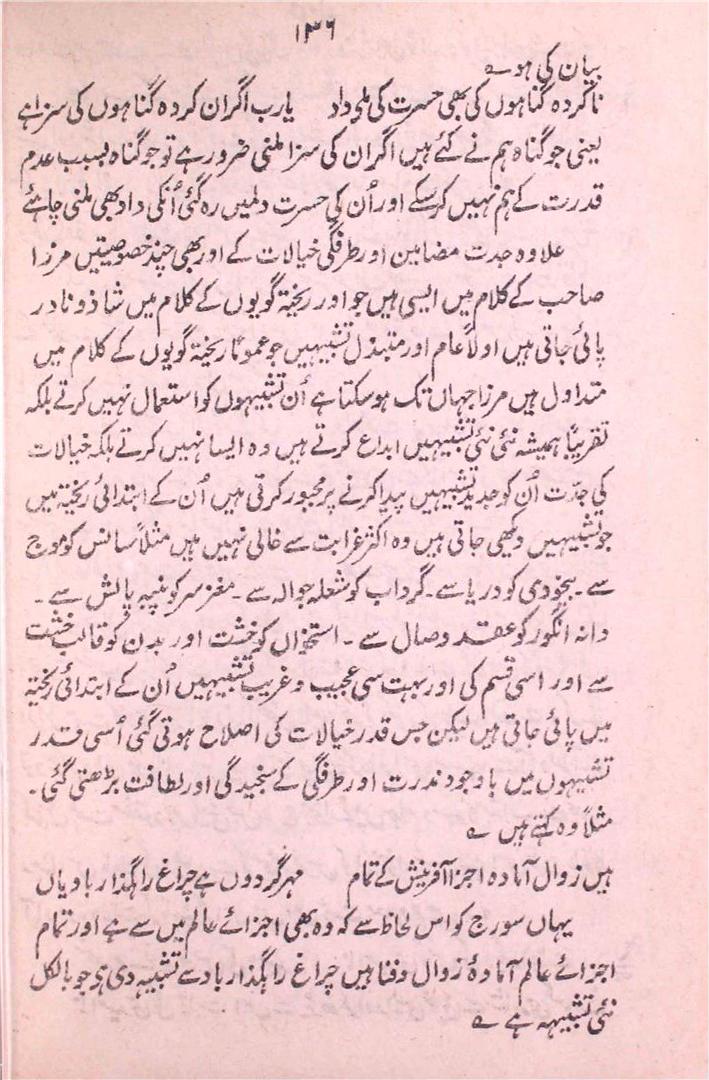 ۱۳۶
بیان کی ہو ؎
ناکردہ گناہوں کی بھی حسرت کی ملی داد یارب اگر ان کردہ گناہوں کی سزا ہے
یعنی جو گناہ ہم نے کئے ہیں اگر ان کی سزا ملنی ضرور ہے تو جو گناہ بسبب عدم
قدرت کے ہم نہیں کرسکے اور اُن کی حسرت دلمیں رہ گئی اُنکی داد بھی ملنی چاہئے
علاوہ جدت مضامین اور طرفگی خیالات کے اور بھی چند خصوصیتیں مرزا
صاحب کے کلام میں ایسی ہیں جو اور ریختہ گویوں کے کلام میں شاذ و نادر
پائی جاتی ہیں اولاً عام اور متبذل تشبیہیں جو عموماً ریختہ گویوں کے کلام میں
متداول ہیں مرزا جہاں تک ہوسکتا ہے اُن تشبیہوں کو استعمال نہیں کرتے بلکہ
تقریباً ہمیشہ نئی نئی تشبیہیں ابداع کرتے ہیں وہ ایسا نہیں کرتے بلکہ خیالات
کی جدّت اُن کو جدید تشبیہیں پیدا کرنے پر مجبور کرتی ہیں اُن کے ابتدائی ریختہ میں
جو تشبیہیں دیکھی جاتی ہیں وہ اکثر غرابت سے خالی نہیں ہیں مثلاً سانس کو موج
سے ۔ بیخودی کو دریا سے ۔ گرداب کو شعلہ جوالہ سے ۔ مغز سر کو پنبہ بالش سے ۔
دانہ انگور کو عقد وصال سے ۔ استخواں کو خشت اور بدن کو قالب خشت
سے اور اسی قسم کی اور بہت سی عجیب و غریب تشبیہیں اُن کے ابتدائی ریختہ
میں پائی جاتی ہیں لیکن جس قدر خیالات کی اصلاح ہوتی گئی اُسی قدر
تشبیہوں میں باوجود ندرت اور طرفگی کے سنجیدگی اور لطافت بڑھتی گئی ۔
مثلاً وہ کہتے ہیں ؎
ہیں زوال آمادہ اجزا آفرینش کے تمام مہر گردوں ہے چراغ راہگذار باد یاں
یہاں سورج کو اس لحاظ سے کہ وہ بھی اجزائے عالم میں سے ہے اور تمام
اجزائے عالم آمادۂ زوال و فنا ہیں چراغ راہگذار باد سے تشبیہ دی ہی جو بالکل
نئی تشبیہہ ہے ؎